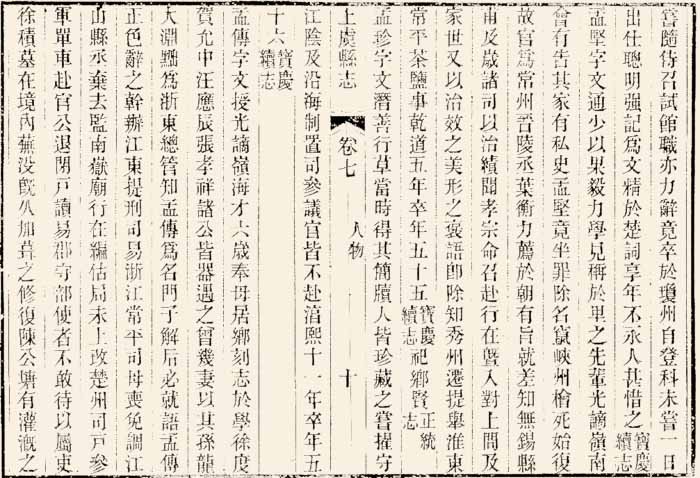 嘗隨侍召試館職亦力辭竟卒於瓊州自登科未嘗一日
出仕聰明强記爲文精於楚詞享年不永人甚惜之寶慶續志
孟堅字文通少以果毅力學見稱於里之先輩光謫嶺南
會有告其家有私史孟堅竟坐罪除名竄峽州檜死始復
故官爲常州晉陵丞葉衡力薦於朝有旨就差知無錫縣
甫及歲諸司以治績聞孝宗命召赴行在曁入對上問及
家世又以治效之美形之褒語卽除知秀州遷提舉淮東
常平茶鹽事乾道五年卒年五十五寶慶續志祀鄉賢正統志
孟珍字文潛善行草當時得其簡牘人皆珍藏之嘗擢守
上虞縣志 卷七 人物 十
江陰及沿海制置司參議官皆不赴湻熙十一年卒年五
十六寶慶續志
孟傳字文授光謫嶺海才六歲奉母居鄉刻志於學徐度
賀允中汪應辰張孝祥諸公皆器遇之曾幾妻以其孫龍
大淵黜爲浙東總管知孟傳爲名門子解后必就語孟傳
正色辭之幹辦江東提刑司易浙江常平司母喪免調江
山縣丞棄去監南嶽廟行在編估局未上改楚州司戸參
軍單車赴官公退閉戸讀易郡守部使者不敢待以屬吏
徐積墓在境內蕪没旣久加葺之修復陳公塘有灌漑之